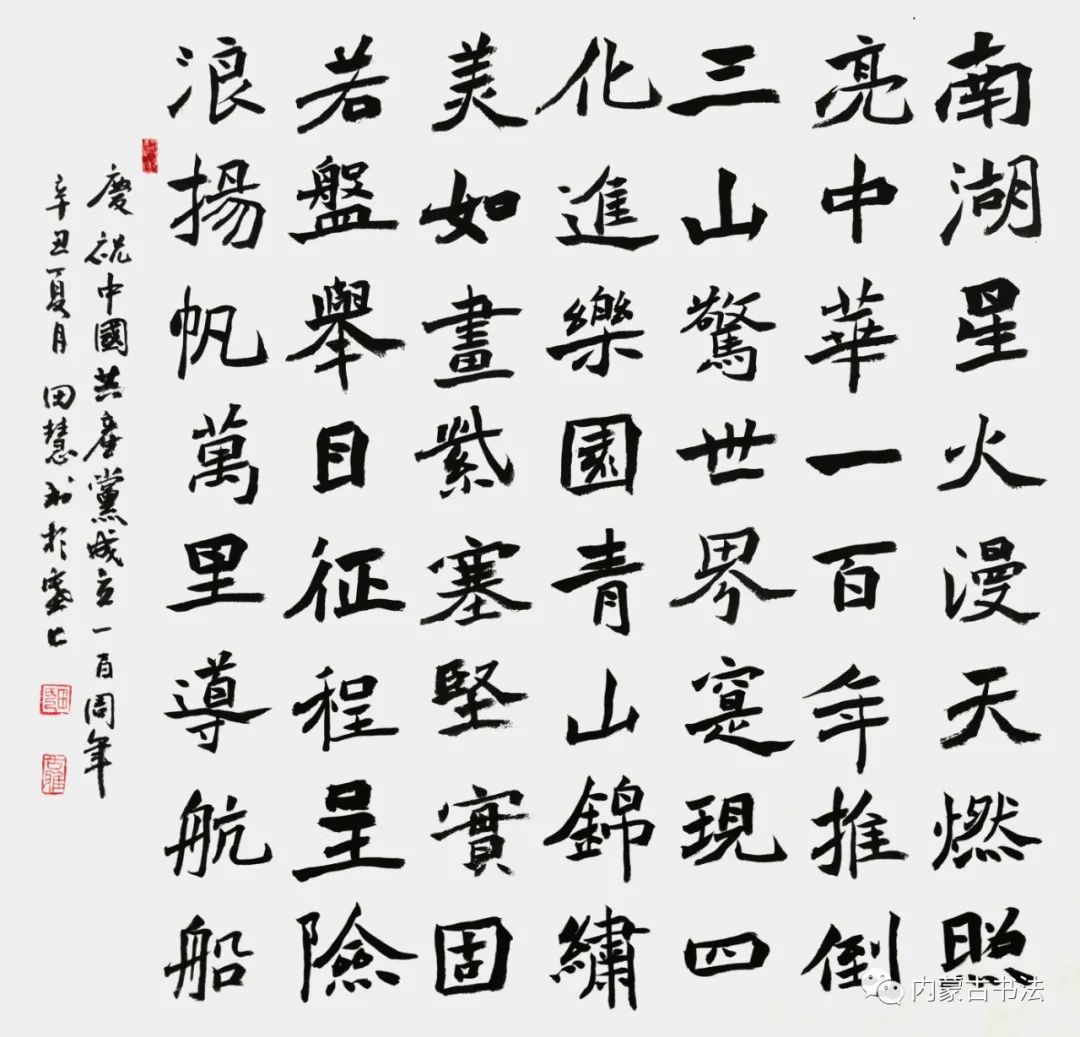 南湖星火漫天燃照
亮中華一百年推倒
三山驚世界寔現四
化進樂園青山錦繡
美如畫紫塞堅實固
若盤舉目征程呈險
浪揚帆萬里導航船
慶祝中國共產黨成立一百周年
辛丑夏月田慧於
内蒙古书法